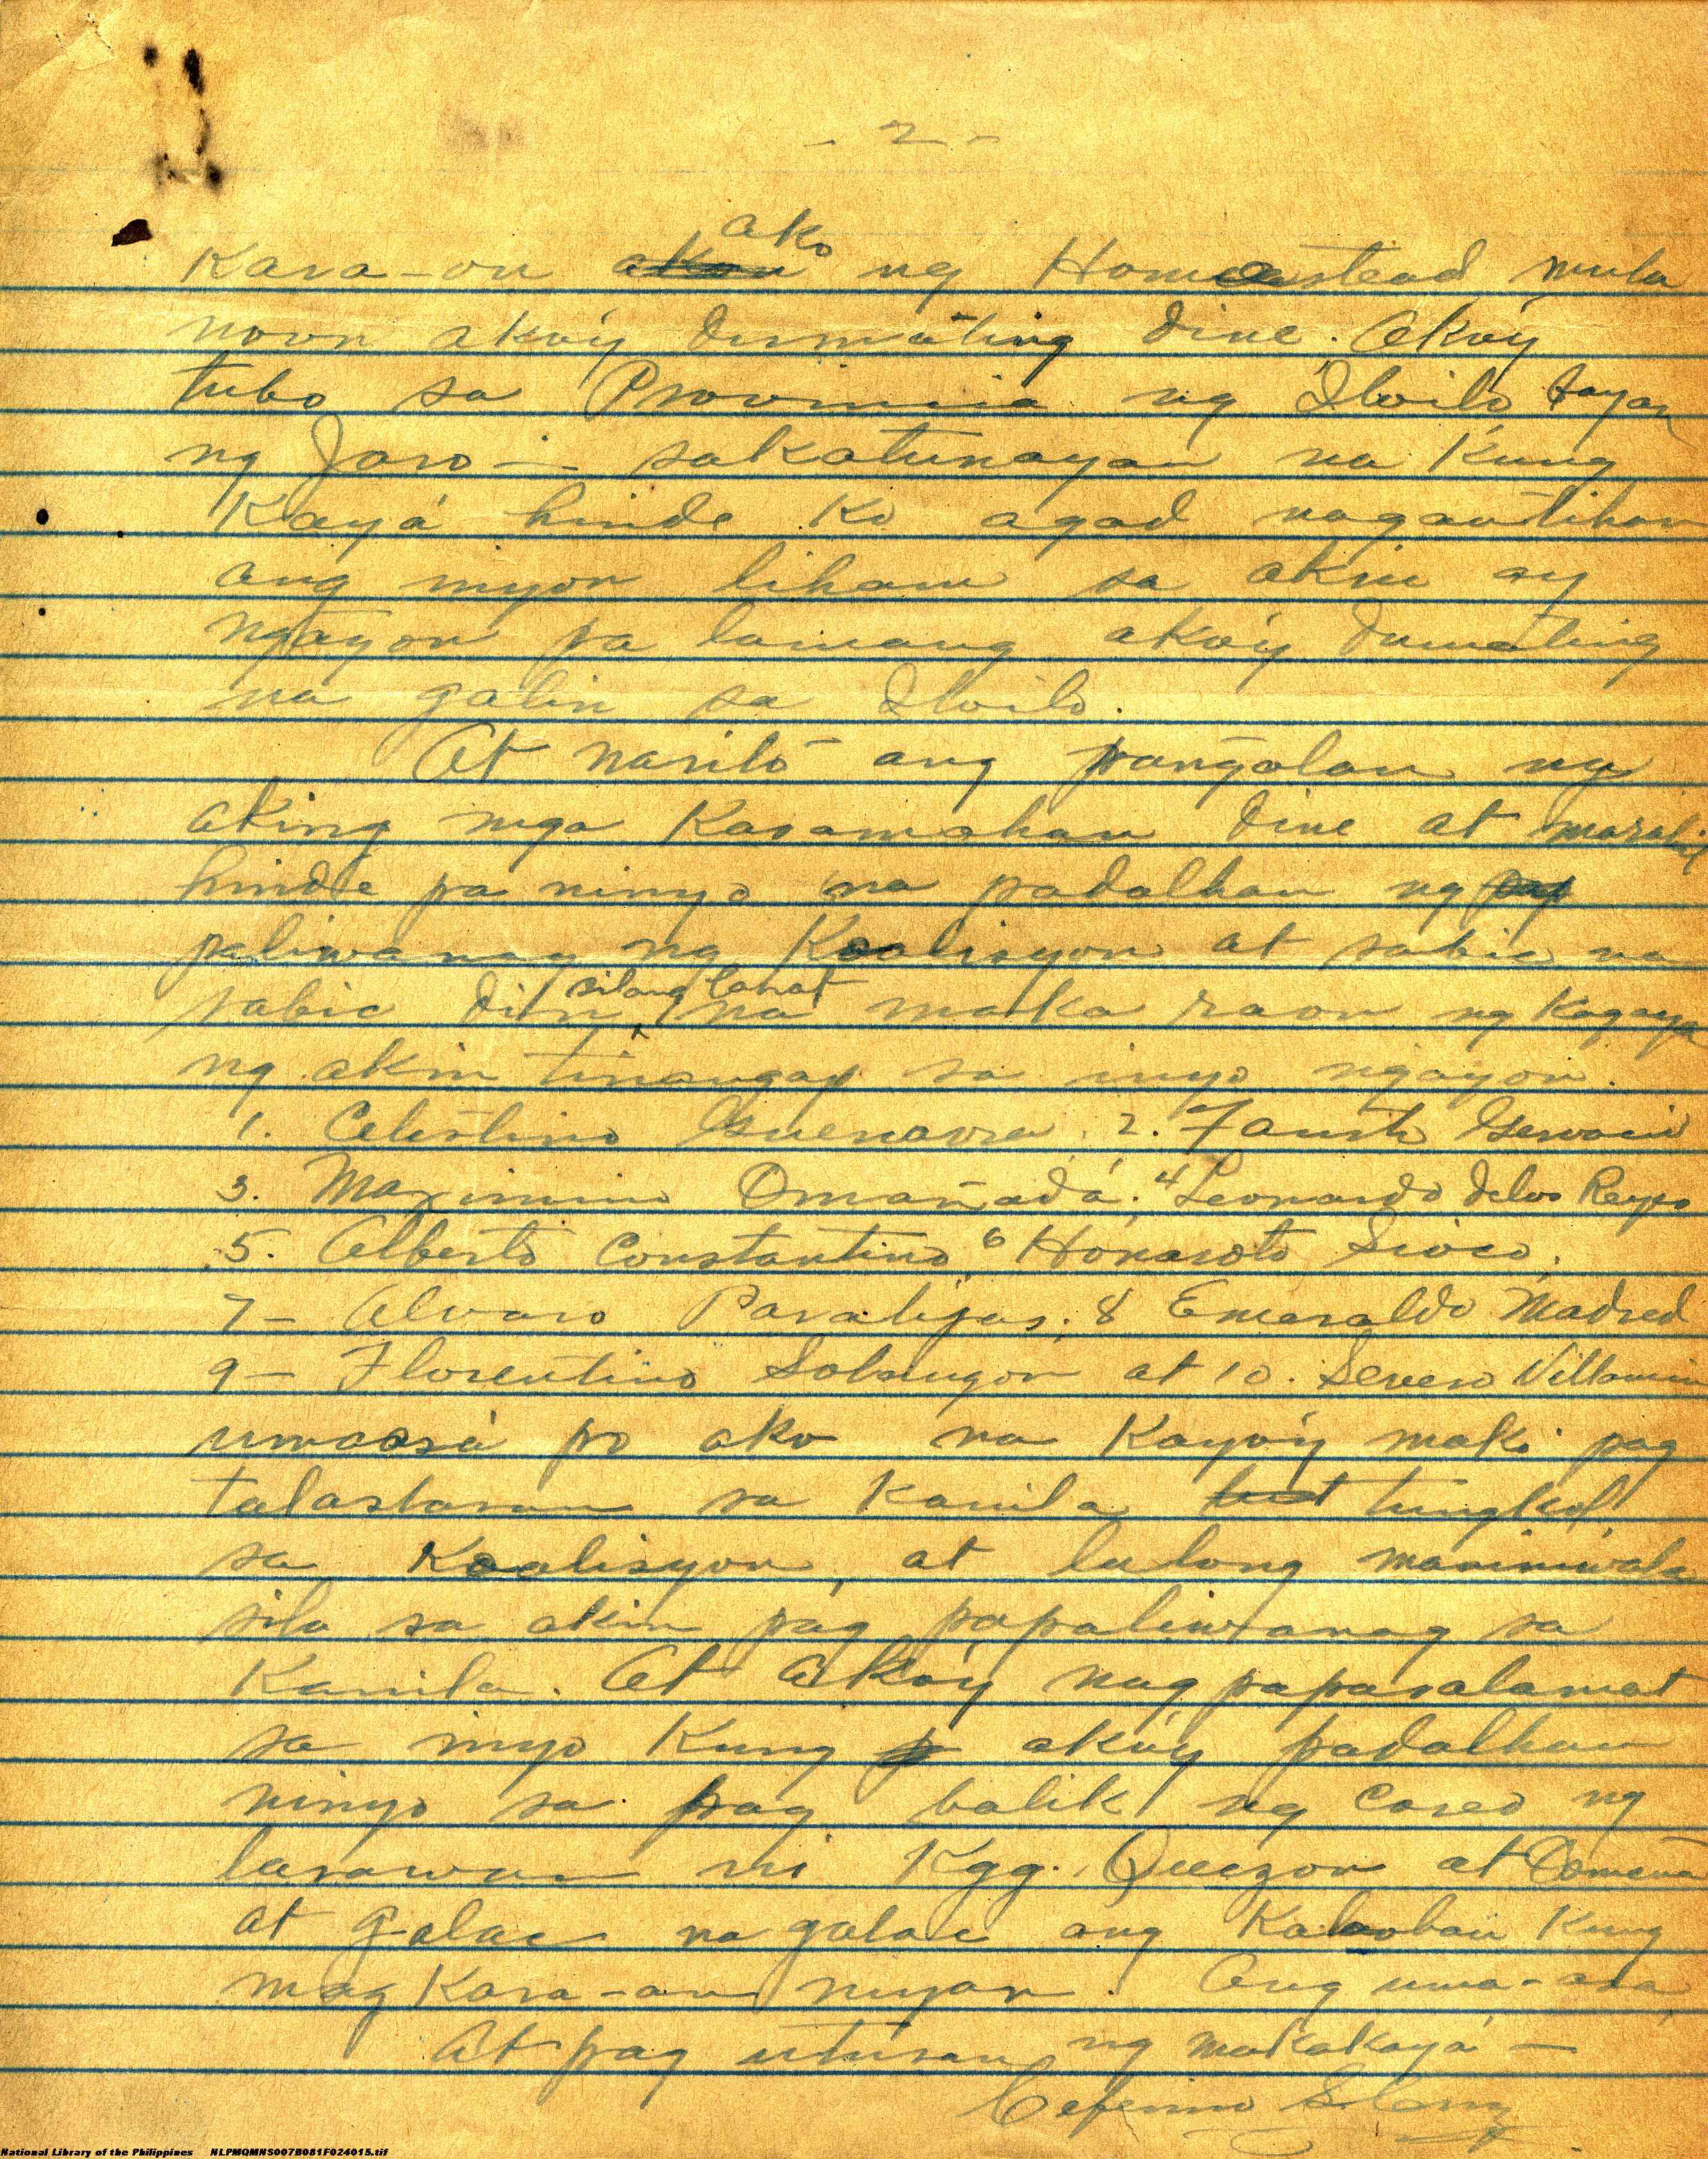 - 2 -
ako
Kara-on akon ng Homeestead mula
noon akoý dumating dine. Akoý
tubo sa Provincia ng Iloilo bayan
ng Jaro — sakatunayan na kung
Kayá hinde ko agad nagantihan
ang inyon liham sa akin ay
Ngayon pa lamang akoý dumating
na galin sa Iloilo.
At narito ang pangalan ng
aking mga Kasamahan dine at marahil
hinde pa ninyo na padalhan ng pag
paliwanag ng Koalisyon at sabic na
silang lahat
sabic din na maka raon ng Kagaya
ng akin tinangap sa inyo ngayon.
1. Celestino Guevarra, 2. Fausto Gervacio
3. Maximino Omañadá, 4 Leonardo delos Reyes
5. Alberto Constantino, 6 Honaroto Sioco,
7- Alvaro Paralijas, 8 Emeraldo Madred
9- Florentino Solangon at 10. Severo Villamin
umaasa po ako na Kayoý maki pag
talastasan sa Kanila tungkol
sa Koalisyon, at lulong maniniwala
sila sa akin pag papaliwanag sa
Kanila. At Akoý nag papasalamat
sa inyo Kung p akoý padalhan
ninyo sa pag balik ng Coreo ng
larawan ni Kgg. Quezon at Osmeña
at galac na galac ang Kalooban Kung
mag Kara-on niyan. Ang uma-asa,
At pag utusan ng makakaya —
Ceferino
National Library of the Philippines NLPMQMNS007B081F024015.tif